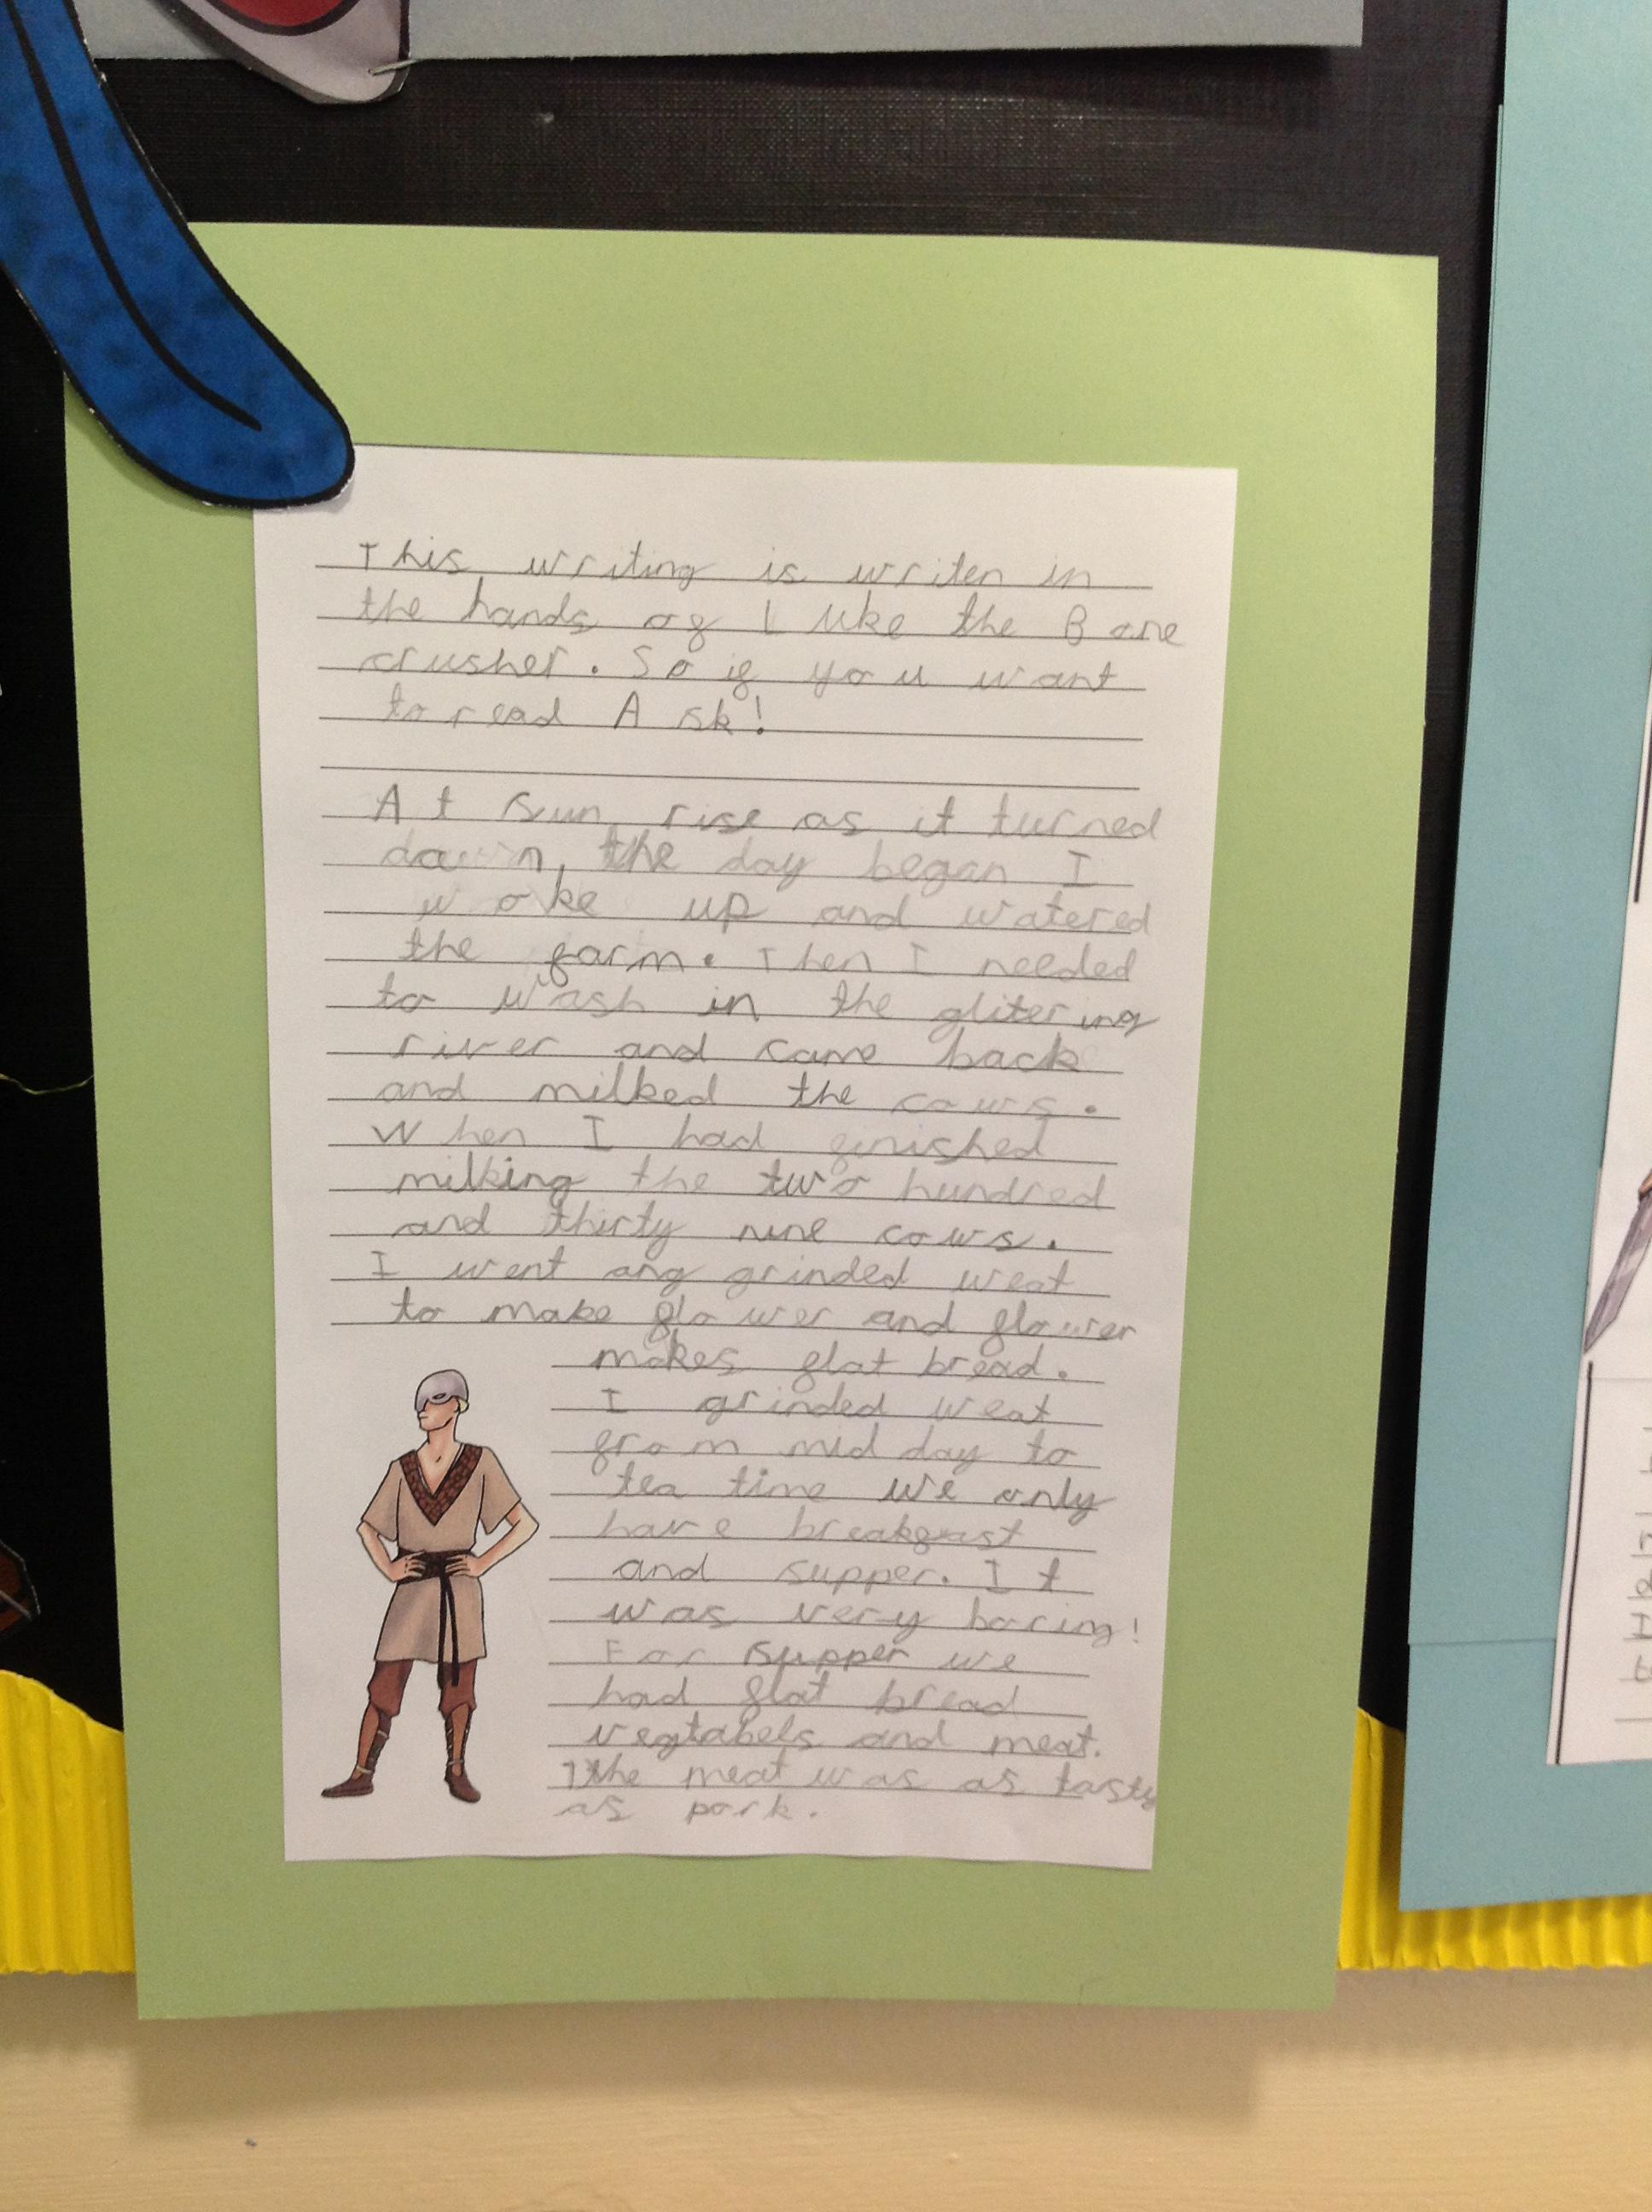 This writing is writen in
the hands of Luke the Bone
crusher. So if you want
to read Ask!
At sun rise as it turned
dawn, the day began I
woke up and watered
the farm. Then I needed
to wash in the glitering
river and came back
and milked the cows.
When I had finished
milking the two hundred
and thirty nine cows.
I went ang grinded weat
to make flower and flower
makes flat bread.
I grinded weat
from mid day to
tea time we only
have breakfast
and supper. It
was very boring!
For supper we
had flat bread
vegtabels and meat.
The meat was as tasty
as pork.